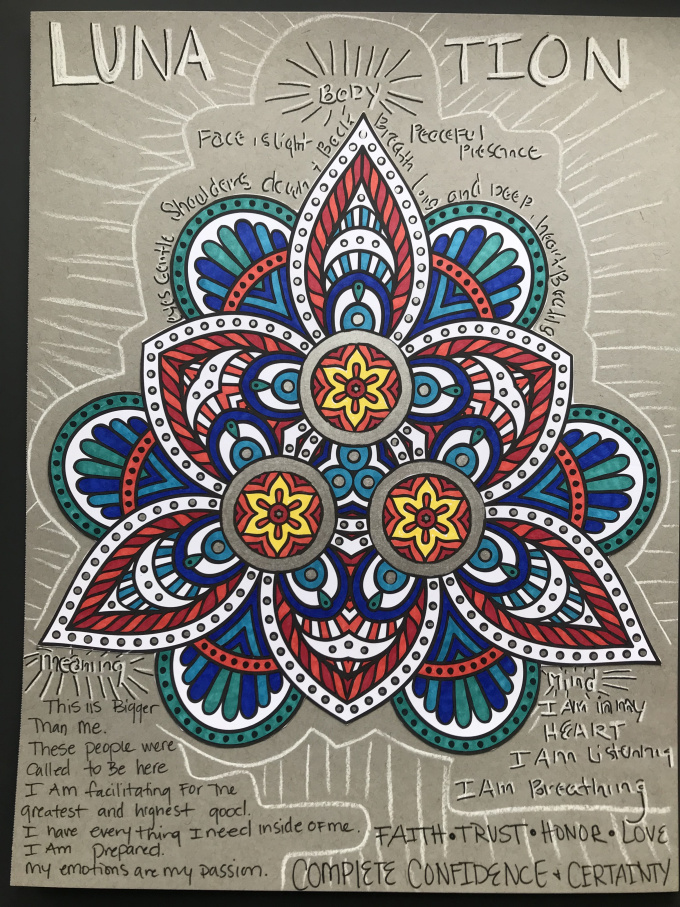 LUNA TION
BODY
Face is light
Peaceful
Presence
Eyes Gentle Shoulders down + Back Breath long and Deep. heart-Beating
Meaning
This is Bigger
Than me.
These people were
Called to Be here
I Am facilitating For The
greatest and highest good.
I have everything I need inside of me.
I Am Prepared.
my emotions are my passion.
Mind
I Am in my
HEART
I Am Listening
I Am Breathing
FAITH • TRUST • HONOR • LOVE
COMPLETE CONFIDENCE + CERTAINTY